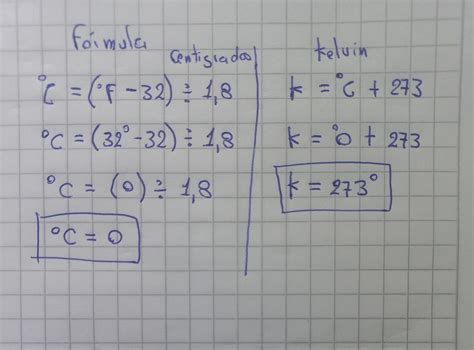 Fórmula
Centigrados
°C = (°F - 32) ÷ 1,8
°C = (32° - 32) ÷ 1,8
°C = (0) ÷ 1,8
°C = 0
kelvin
k = °C + 273
k = °0 + 273
k = 273°